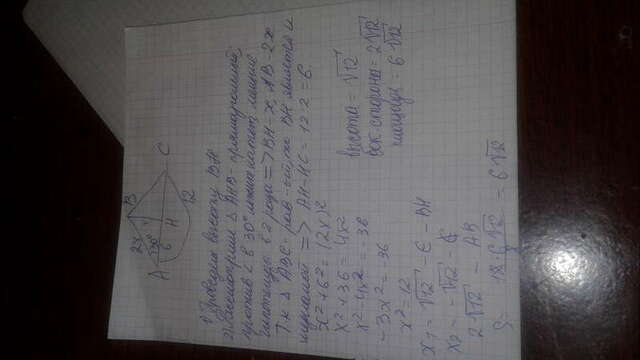 B
2x
x
A
30°
6
H
C
12
1) Проведём высоту BH
2) Рассмотрим Δ AHB - прямоугольный,
против ∠ в 30° лежит катет, меньше
гипотенузы в 2 раза => BH - x, AB - 2x
Т.к Δ ABC - рав-ый, то BH является и
медианой => AH - HC = 12:2 = 6
x² + 6² = (2x)²
x² + 36 = 4x²
x² - 4x² = -36
-3x² = -36
x² = 12
x₁ = √12 - BH
x₂ = -√12
2√12 - AB
S = - 6√12
высота = √12
бок. стороны = 2√12
площадь = 6√12